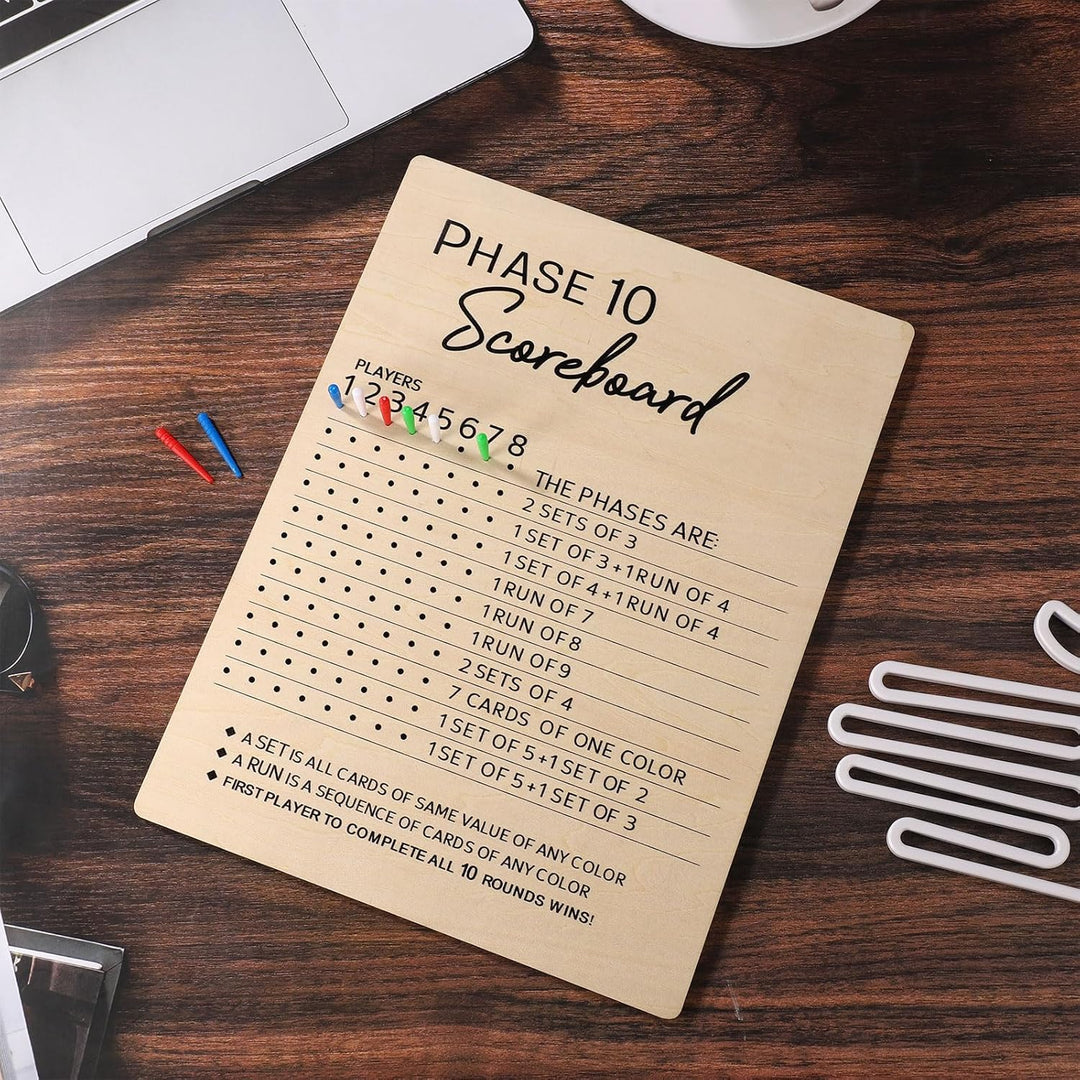 PHASE 10
Scoreboard
PLAYERS
1 2 3 4 5 6 7 8
THE PHASES ARE:
2 SETS OF 3
1 SET OF 3 + 1 RUN OF 4
1 SET OF 4 + 1 RUN OF 4
1 RUN OF 7
1 RUN OF 8
1 RUN OF 9
2 SETS OF 4
7 CARDS OF ONE COLOR
1 SET OF 5 + 1 SET OF 2
1 SET OF 5 + 1 SET OF 3
◆ A SET IS ALL CARDS OF SAME VALUE OF ANY COLOR
◆ A RUN IS A SEQUENCE OF CARDS OF ANY COLOR
◆ FIRST PLAYER TO COMPLETE ALL 10 ROUNDS WINS!